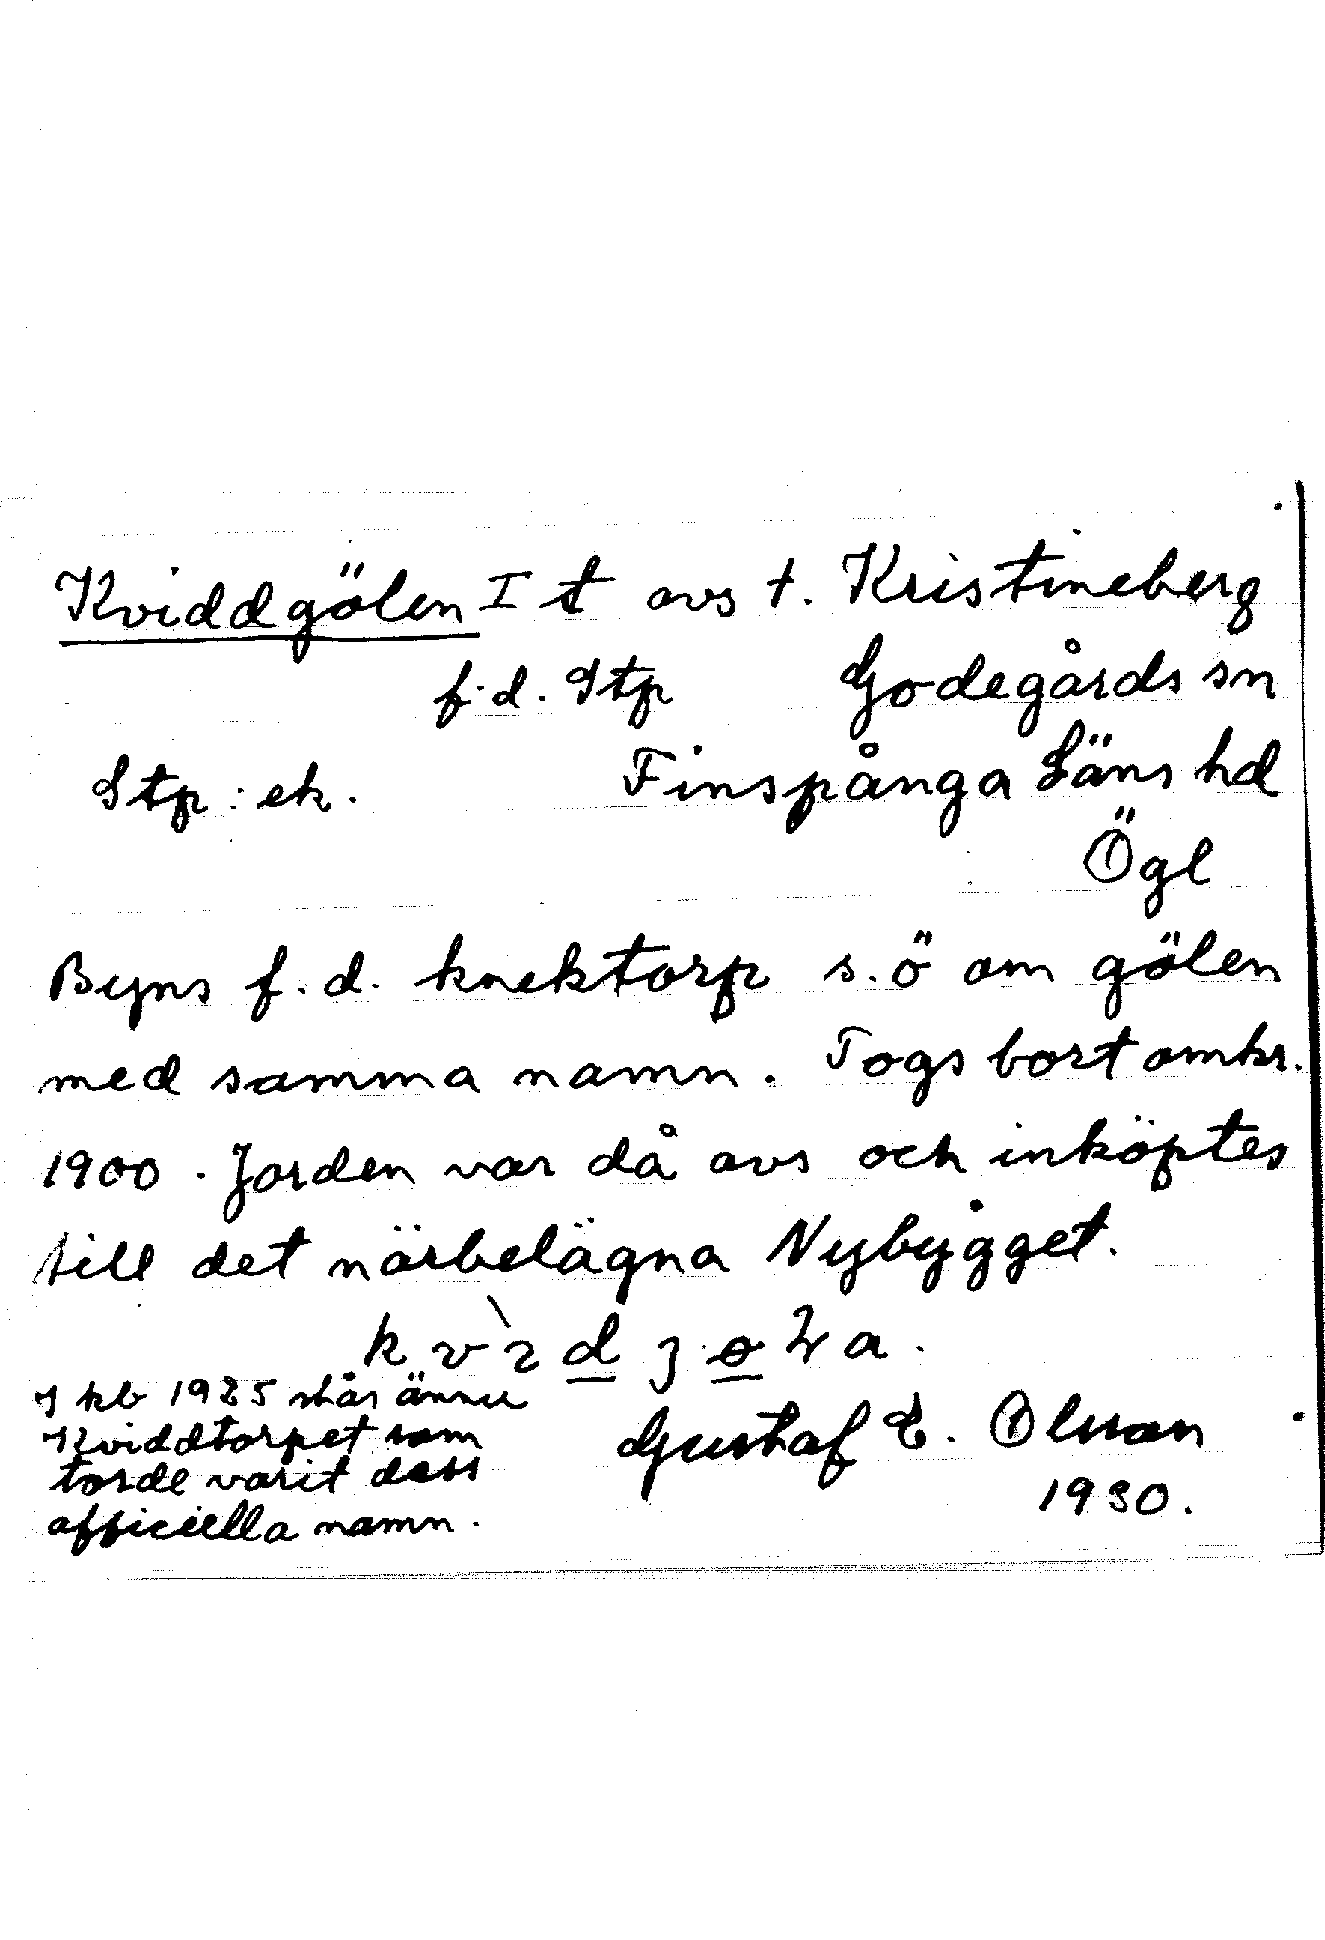 Kviddgölen I t avs t. Kristineberg
f.d. Stp Godegårds sn
Stp: ek. Finspånga Läns hd
Ögl
Byns f.d. knektorp s.ö om gölen
med samma namn. Togs bort omkr.
1900. Jorden var då avs och inköptes
till det närbelägna Nybygget.
I kb 1925 står ännu
Kviddtorpet som
torde varit dess
officiella namn.
Gustaf E. Olsson
1930.